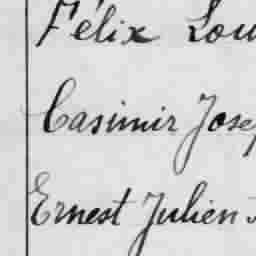 Félix Lou
Casimir Josep
Ernest Julien